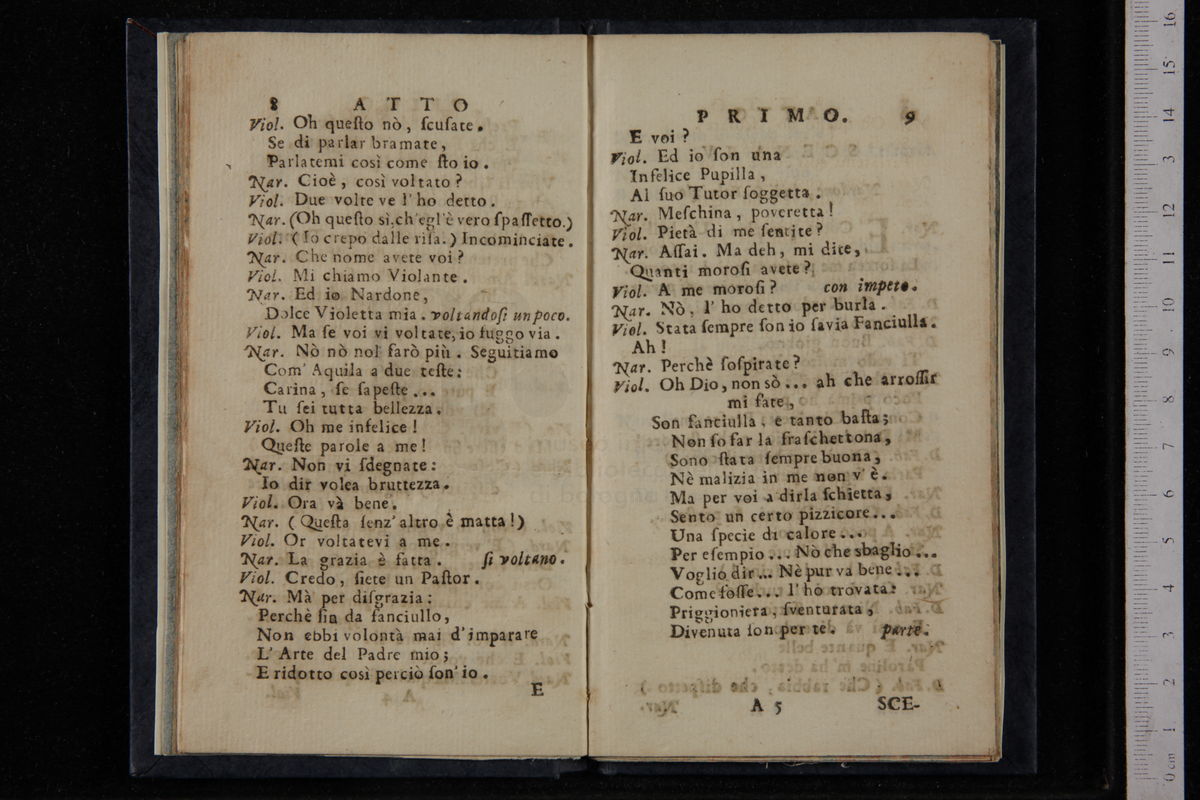 8 ATTO
Viol. Oh queſto nò, ſcuſate.
Se di parlar bramate,
Parlatemi così come ſto io.
Nar. Cioè, così voltato?
Viol. Due volte ve l'ho detto.
Nar. (Oh queſto sì.ch'egl'è vero ſpaſſetto.)
Viol. (Io crepo dalle riſa.) Incominciate.
Nar. Che nome avete voi?
Viol. Mi chiamo Violante.
Nar. Ed io Nardone,
Dolce Violetta mia. voltandoſi un poco.
Viol. Ma ſe voi vi voltate, io fuggo via.
Nar. Nò nò nol farò più. Seguitiamo
Com' Aquila a due teſte:
Carina, ſe ſapeſte...
Tu ſei tutta bellezza.
Viol. Oh me infelice!
Queſte parole a me!
Nar. Non vi ſdegnate:
Io dir volea bruttezza.
Viol. Ora và bene.
Nar. (Queſta ſenz' altro è matta!)
Viol. Or voltatevi a me.
Nar. La grazia è fatta. ſi voltano.
Viol. Credo, ſiete un Paſtor.
Nar. Mà per diſgrazia:
Perchè ſin da fanciullo,
Non ebbi volontà mai d'imparare
L'Arte del Padre mio;
E ridotto così perciò ſon' io.
E
PRIMO. 9
E voi?
Viol. Ed io ſon una
Infelice Pupilla,
Al ſuo Tutor ſoggetta.
Nar. Meſchina, poveretta!
Viol. Pietà di me ſentite?
Nar. Aſſai. Ma deh, mi dite,
Quanti moroſi avete?
Viol. A me moroſi? con impeto.
Nar. Nò, l'ho detto per burla.
Viol. Stata ſempre ſon io ſavia Fanciulla.
Ah!
Nar. Perchè ſoſpirate?
Viol. Oh Dio, non sò... ah che arroſſir
mi fate,
Son fanciulla, e tanto baſta;
Non ſo far la fraſchettona,
Sono ſtata ſempre buona,
Nè malizia in me non v'è.
Ma per voi a dirla ſchietta,
Sento un certo pizzicore...
Una ſpecie di calore...
Per eſempio... Nò che sbaglio...
Voglio dir... Nè pur va bene...
Come foſſe... l'ho trovata:
Priggioniera, ſventurata,
Divenuta ſon per te. parte.
A 5 SCE-
0 cm 1 2 3 4 5 6 7 8 9 10 11 12 13 14 15 16